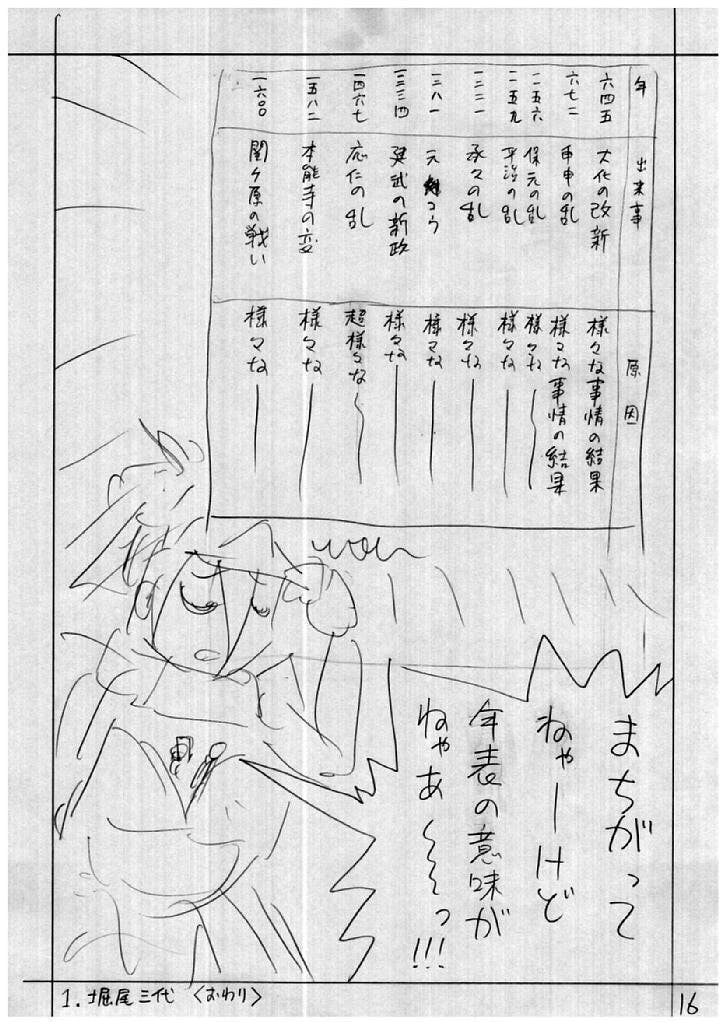 年
出来事
原因
六四五
大化の改新
様々な事情の結果
六七二
申申の乱
様々な事情の結果
一一五六
保元の乱
様々な
一一五九
平治の乱
様々な
一二二一
承久の乱
様々な
一二八一
元 コウ
様々な
一三三四
建武の新政
様々な
一四六七
応仁の乱
超様々な
一五八二
本能寺の変
様々な
一六〇〇
関ヶ原の戦い
様々な
まちがって
ねゃーけど
年表の意味が
ねゃあ〜〜っ!!!
1. 堀尾三代 〈おわり〉
16